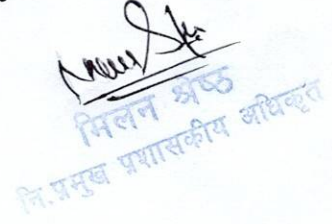 मिलन श्रेष्ठ
नि.प्रमुख प्रशासकीय अधिकृत